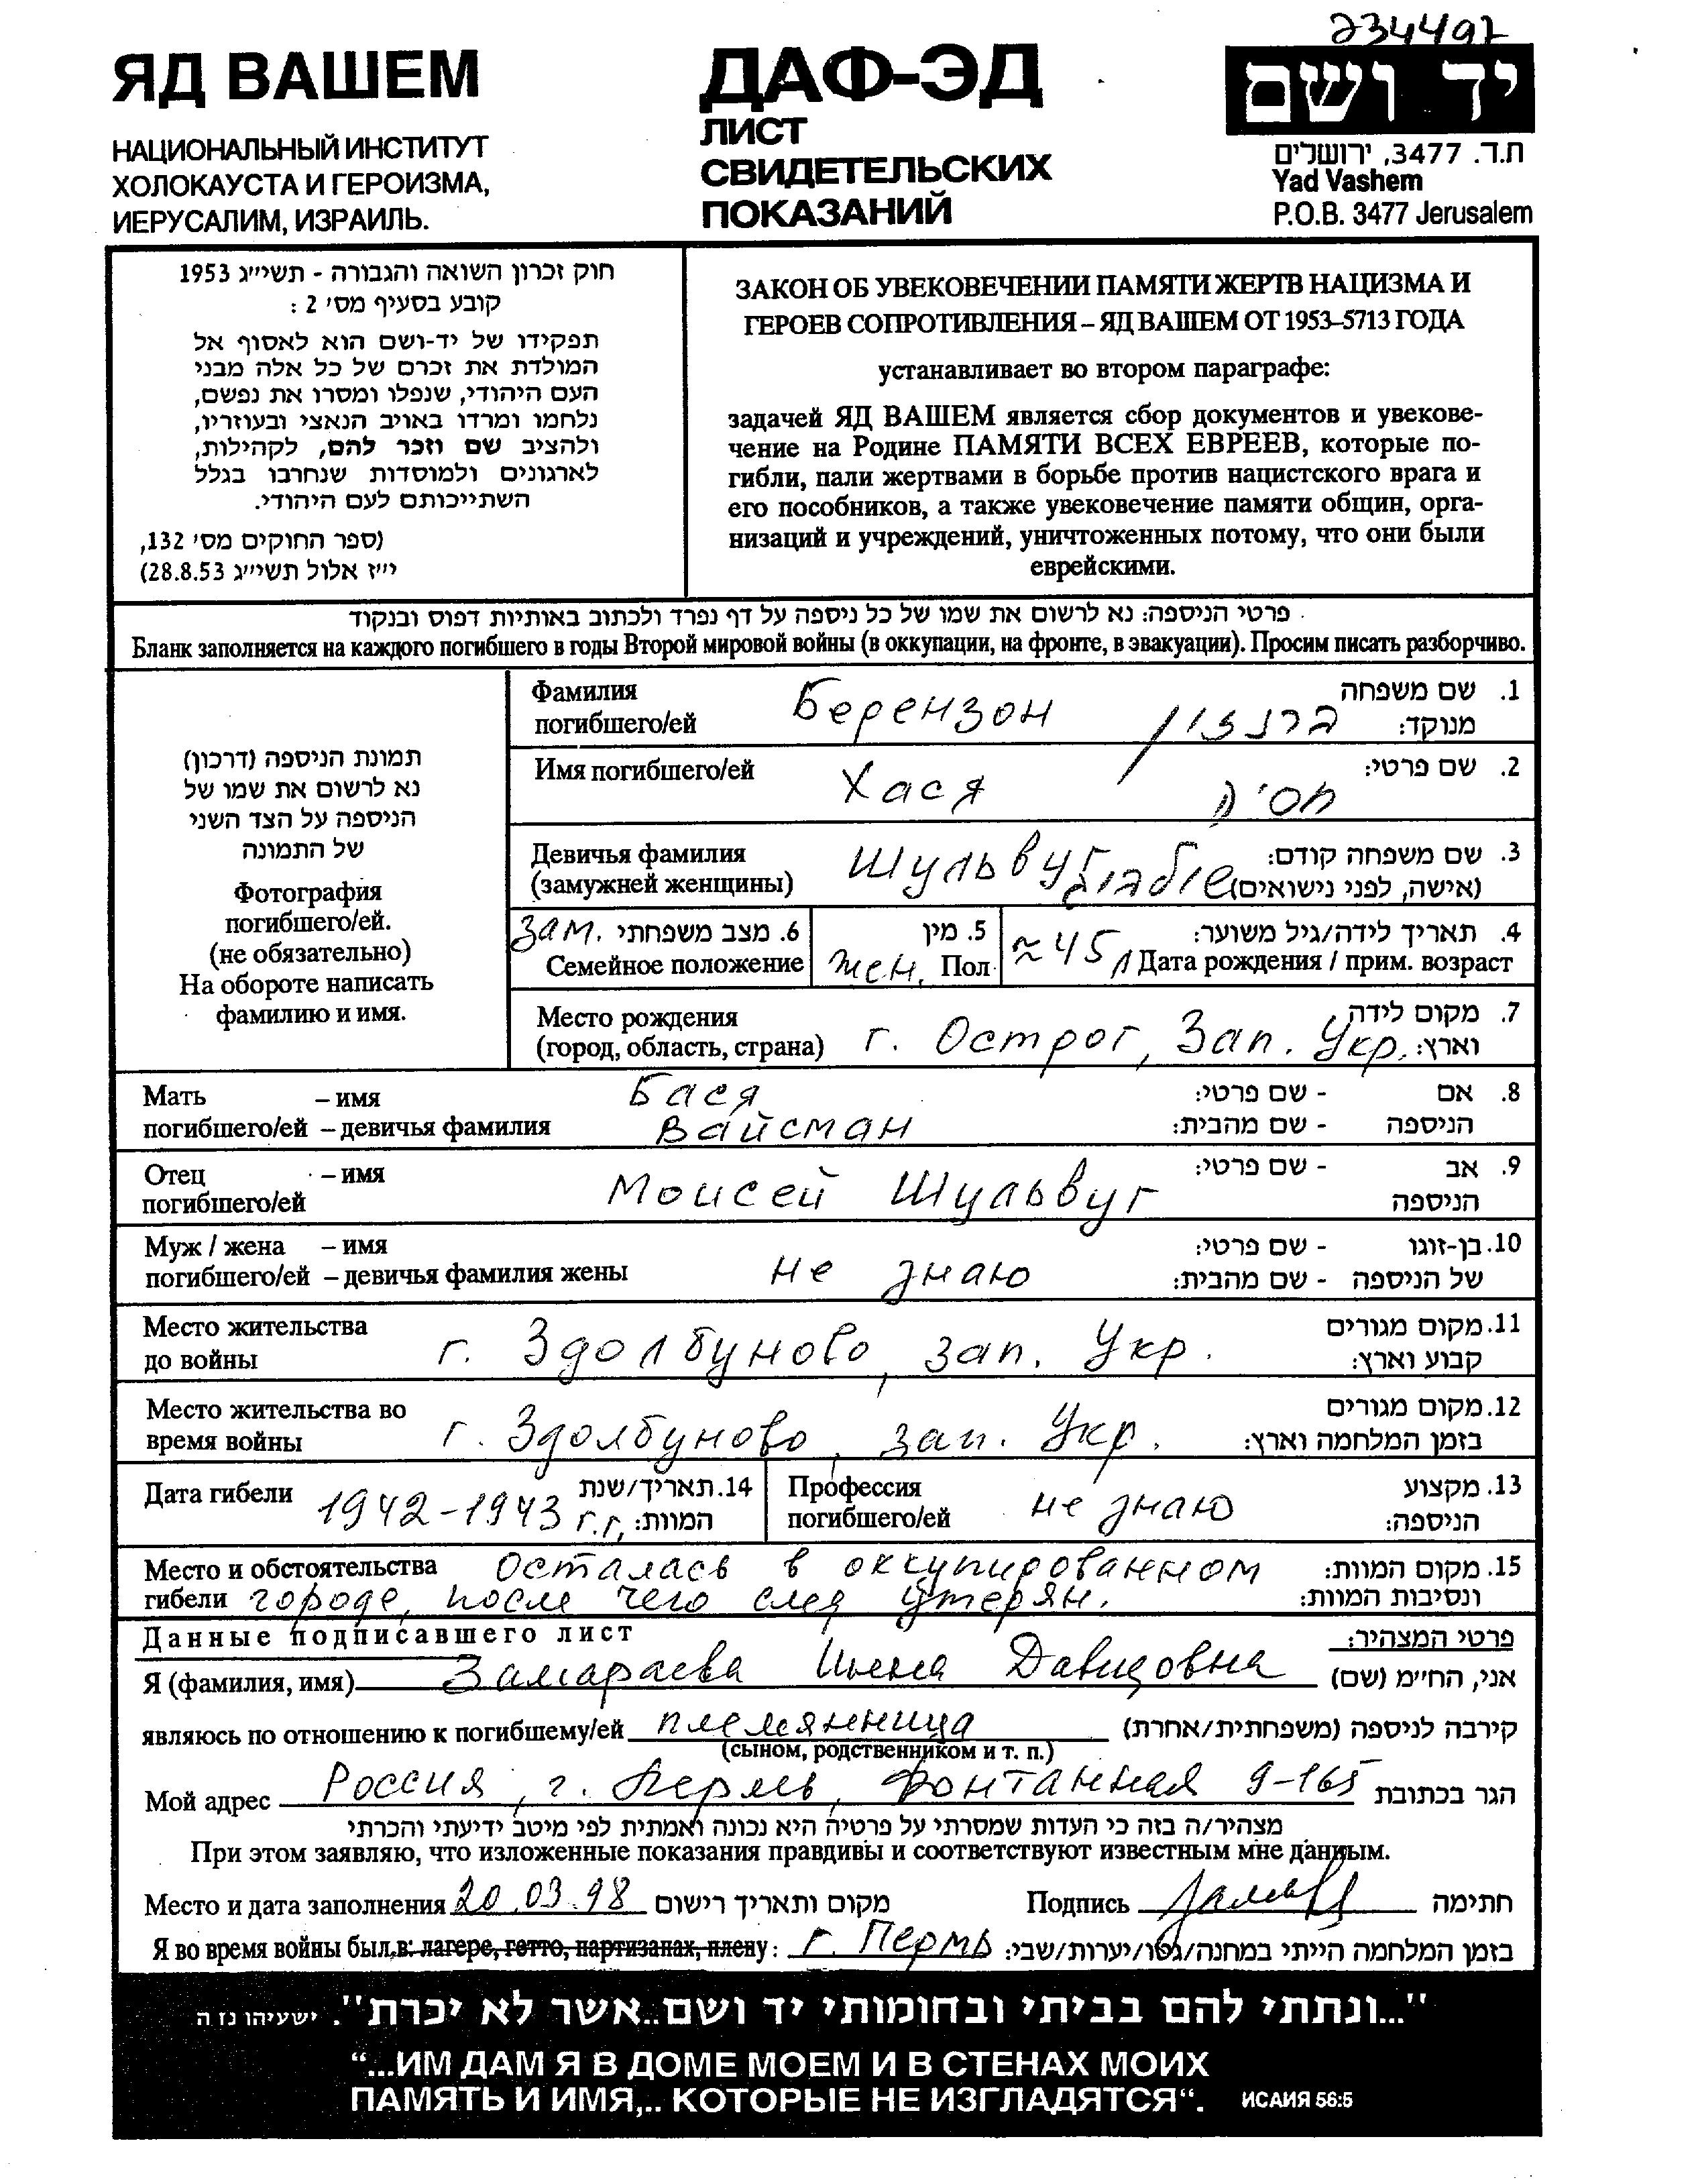 234497
ЯД ВАШЕМ
НАЦИОНАЛЬНЫЙ ИНСТИТУТ
ХОЛОКАУСТА И ГЕРОИЗМА,
ИЕРУСАЛИМ, ИЗРАИЛЬ.
ДАФ-ЭД
ЛИСТ
СВИДЕТЕЛЬСКИХ
ПОКАЗАНИЙ
יד ושם
ת.ד. 3477, ירושלים
Yad Vashem
P.O.B. 3477 Jerusalem
חוק זכרון השואה והגבורה - תשי״ג 1953
קובע בסעיף מס׳ 2 :
תפקידו של יד-ושם הוא לאסוף אל
המולדת את זכרם של כל אלה מבני
העם היהודי, שנפלו ומסרו את נפשם,
נלחמו ומרדו באויב הנאצי ובעוזריו,
ולהציב שם וזכר להם, לקהילות,
לארגונים ולמוסדות שנחרבו בגלל
השתייכותם לעם היהודי.
(ספר החוקים מס׳ 132,
י״ז אלול תשי״ג 28.8.53)
ЗАКОН ОБ УВЕКОВЕЧЕНИИ ПАМЯТИ ЖЕРТВ НАЦИЗМА И
ГЕРОЕВ СОПРОТИВЛЕНИЯ – ЯД ВАШЕМ ОТ 1953–5713 ГОДА
устанавливает во втором параграфе:
задачей ЯД ВАШЕМ является сбор документов и увекове-
чение на Родине ПАМЯТИ ВСЕХ ЕВРЕЕВ, которые по-
гибли, пали жертвами в борьбе против нацистского врага и
его пособников, а также увековечение памяти общин, орга-
низаций и учреждений, уничтоженных потому, что они были
еврейскими.
פרטי הניספה: נא לרשום את שמו של כל ניספה על דף נפרד ולכתוב באותיות דפוס ובנקוד
Бланк заполняется на каждого погибшего в годы Второй мировой войны (в оккупации, на фронте, в эвакуации). Просим писать разборчиво.
תמונת הניספה (דרכון)
נא לרשום את שמו של
הניספה על הצד השני
של התמונה
Фотография
погибшего/ей.
(не обязательно)
На обороте написать
фамилию и имя.
Фамилия Берензон 1. שם משפחה
погибшего/ей ברנזון מנוקד:
Имя погибшего/ей Хася חסיה 2. שם פרטי:
Девичья фамилия Шульвуг שולבוג 3. שם משפחה קודם:
(замужней женщины) (אישה, לפני נישואים)
зам. 6. מצב משפחתי
Семейное положение
5. מין
жен. Пол
4. תאריך לידה/גיל משוער:
≈45 л Дата рождения / прим. возраст
Место рождения 7. מקום לידה
(город, область, страна) г. Острог, Зап. Укр. וארץ:
Мать – имя Бася - שם פרטי: 8. אם
погибшего/ей – девичья фамилия Вайсман - שם מהבית: הניספה
Отец – имя Моисей Шульвуг - שם פרטי: 9. אב
погибшего/ей הניספה
Муж / жена – имя - שם פרטי: 10. בן-זוגו
погибшего/ей – девичья фамилия жены не знаю - שם מהבית: של הניספה
Место жительства 11. מקום מגורים
до войны г. Здолбуново, зап. Укр. קבוע וארץ:
Место жительства во 12. מקום מגורים
время войны г. Здолбуново, зап. Укр. בזמן המלחמה וארץ:
Дата гибели 1942-1943 г.г. 14. תאריך/שנת
המוות:
Профессия 13. מקצוע
погибшего/ей не знаю הניספה:
Место и обстоятельства осталась в оккупированном 15. מקום המוות:
гибели городе, после чего след утерян. ונסיבות המוות:
Данные подписавшего лист פרטי המצהיר:
Я (фамилия, имя) Замараева Инна Давидовна אני, החי״מ (שם)
являюсь по отношению к погибшему/ей племянница קירבה לניספה (משפחתית/אחרת)
(сыном, родственником и т. п.)
Мой адрес Россия, г. Пермь, Фонтанная 9-165 הגר בכתובת
מצהיר/ה בזה כי העדות שמסרתי על פרטיה היא נכונה ואמתית לפי מיטב ידיעתי והכרתי
При этом заявляю, что изложенные показания правдивы и соответствуют известным мне данным.
Место и дата заполнения 20.03.98 מקום ותאריך רישום Подпись חתימה
Я во время войны был в: лагере, гетто, партизанах, плену: г. Пермь בזמן המלחמה הייתי במחנה/גטו/יערות/שבי:
"...ונתתי להם בביתי ובחומותי יד ושם..אשר לא יכרת". ישעיהו נז ה
“...ИМ ДАМ Я В ДОМЕ МОЕМ И В СТЕНАХ МОИХ
ПАМЯТЬ И ИМЯ,.. КОТОРЫЕ НЕ ИЗГЛАДЯТСЯ“. ИСАИЯ 56:5